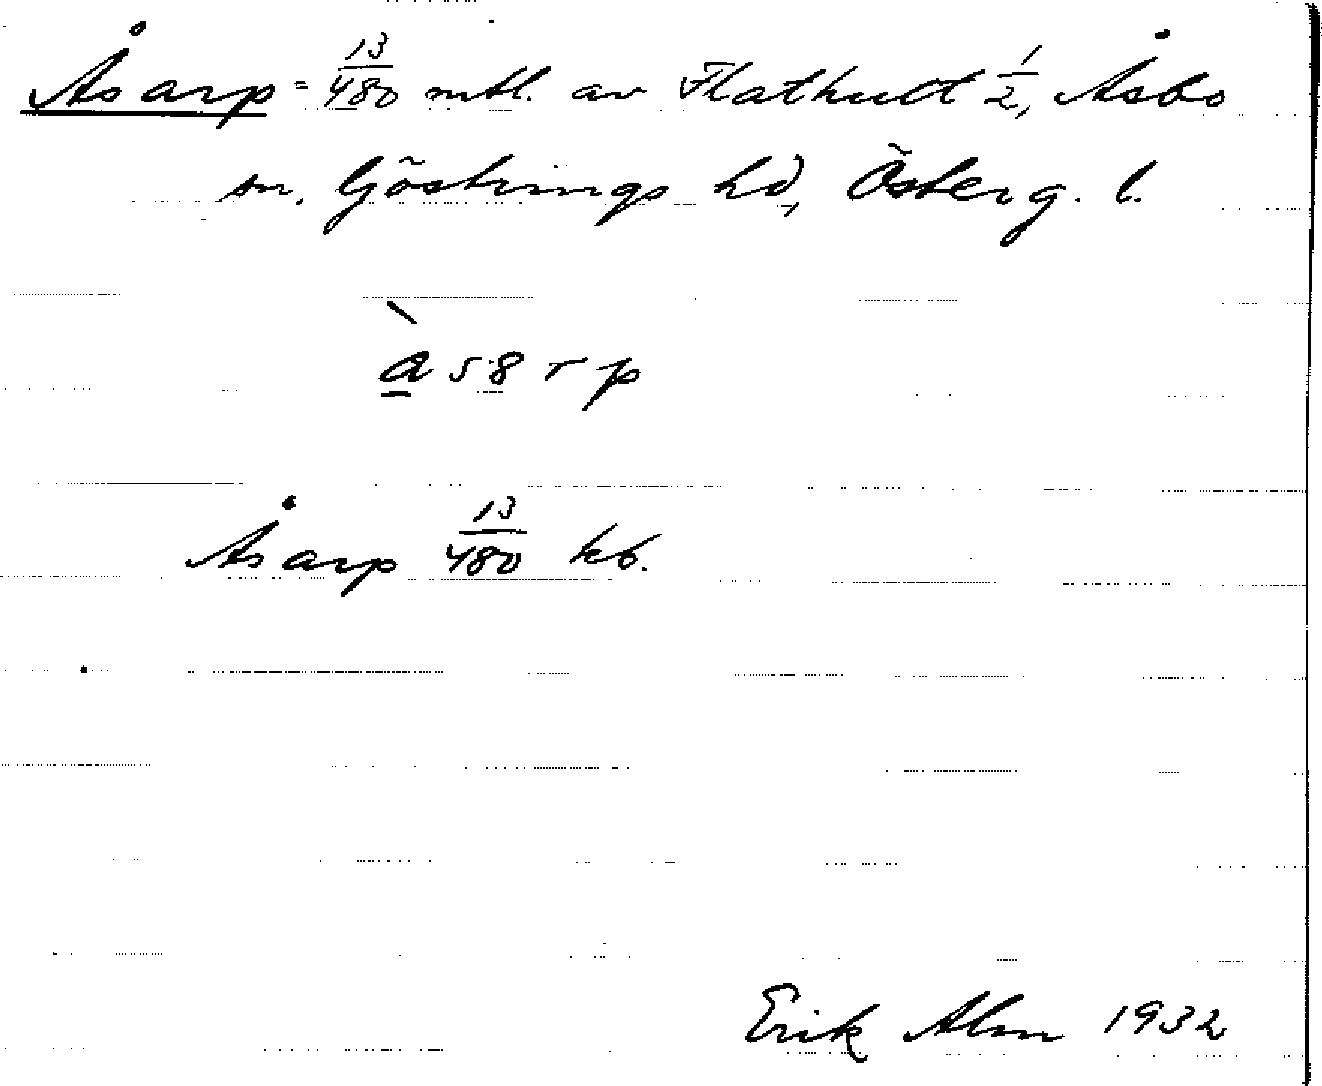 Åsarp = 13/480 mtl. av Flathult 1/2, Åsbo
sn. Göstrings hd, Österg. l.
às8rp
Åsarp 13/480 kb.
Erik Alm 1932